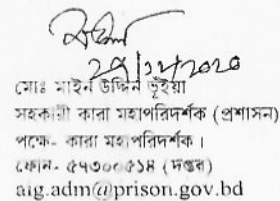 ২৭/১২/২০২০
মোঃ মাইন উদ্দিন ভূঁইয়া
সহকারী কারা মহাপরিদর্শক (প্রশাসন)
পক্ষে- কারা মহাপরিদর্শক।
ফোন- ৫৭৩০০৫১৪ (দপ্তর)
aig.adm@prison.gov.bd